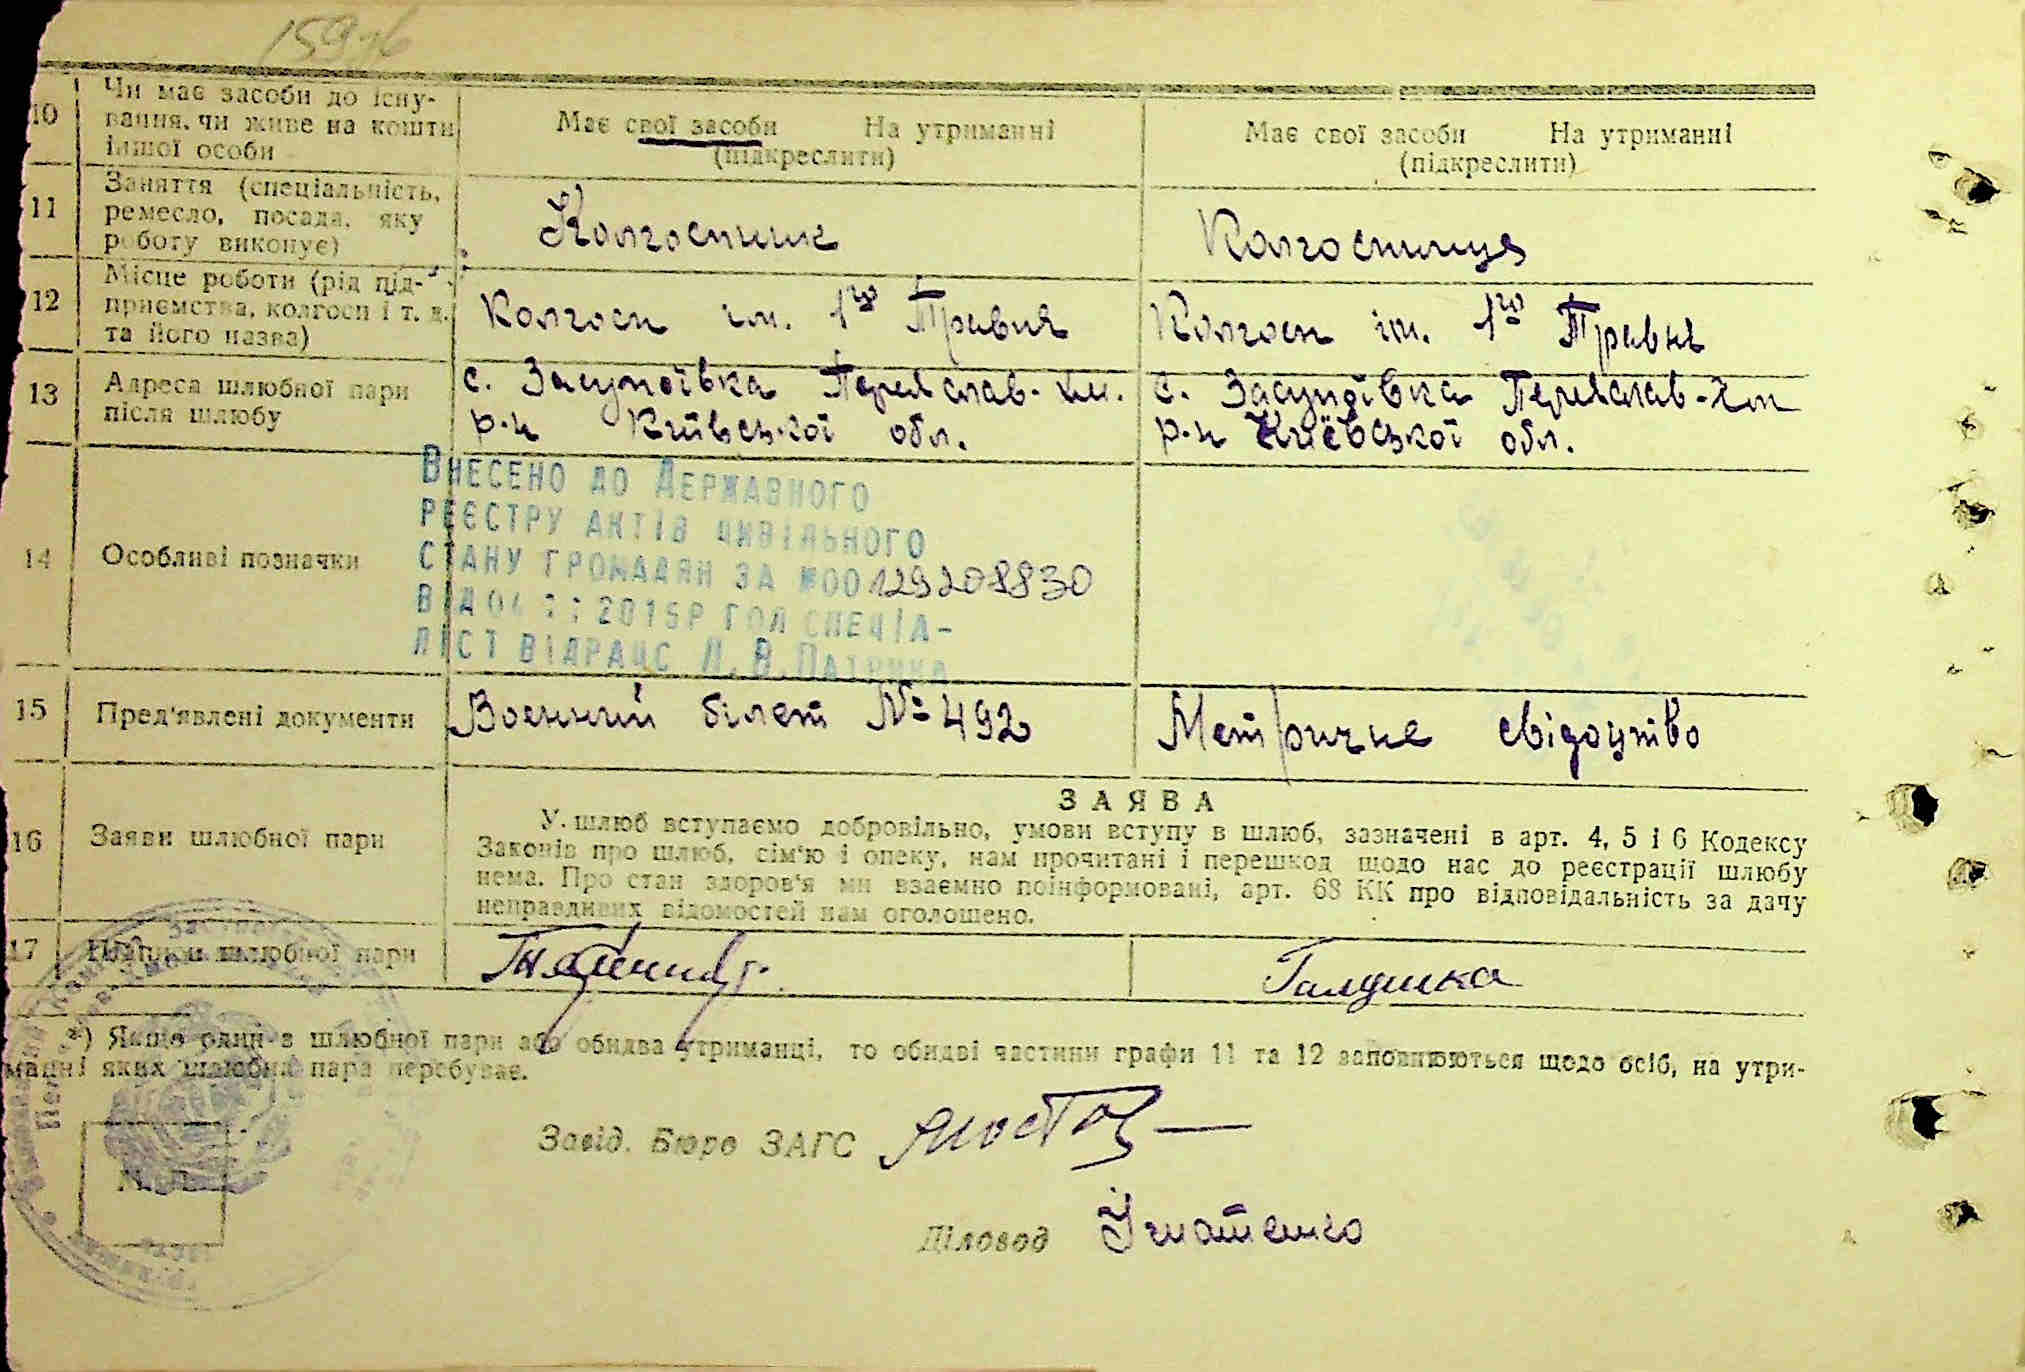 10 Чи має засоби до існу-
вання, чи живе на кошти
іншої особи
Має свої засоби На утриманні
(підкреслити)
Має свої засоби На утриманні
(підкреслити)
11 Заняття (спеціальність,
ремесло, посада, яку
роботу виконує)
Колгоспник
Колгоспниця
12 Місце роботи (рід під-
приємства, колгосп і т. д.
та його назва)
Колгосп ім. 1го Травня
Колгосп ім. 1го Травня
13 Адреса шлюбної пари
після шлюбу
с. Засупоївка Переяслав-хм.
р-н Київської обл.
с. Засупоївка Переяслав-Хм
р-н Киёвської обл.
14 Особливі позначки
Внесено до Державного
реєстру актів цивільного
стану громадян за №00129208830
від 04 2015р гол спеціа-
ліст відрацс Л.В.
15 Пред'явлені документи
Военний білет № 492
Метричне свідоцтво
16 Заяви шлюбної пари
ЗАЯВА
У шлюб вступаємо добровільно, умови вступу в шлюб, зазначені в арт. 4, 5 і 6 Кодексу
Законів про шлюб, сім'ю і опеку, нам прочитані і перешкод щодо нас до реєстрації шлюбу
нема. Про стан здоров'я ми взаємно поінформовані, арт. 68 КК про відповідальність за дачу
неправдивих відомостей нам оголошено.
17 Підписи шлюбної пари
Галушка
*) Якщо один з шлюбної пари або обидва утриманці, то обидві частини графи 11 та 12 заповнюються щодо осіб, на утри-
манні яких шлюбна пара перебуває.
Завід. Бюро ЗАГС
М. П.
Діловод Ігнатенко